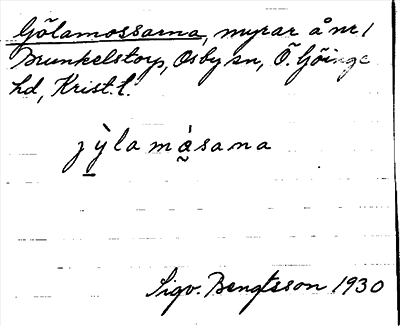 Gölamossarna, myrar å nr 1
Brunkelstorp, Osby sn, Ö. Göinge
hd, Krist. l.
jỳlamásana
Sigv. Bengtsson 1930